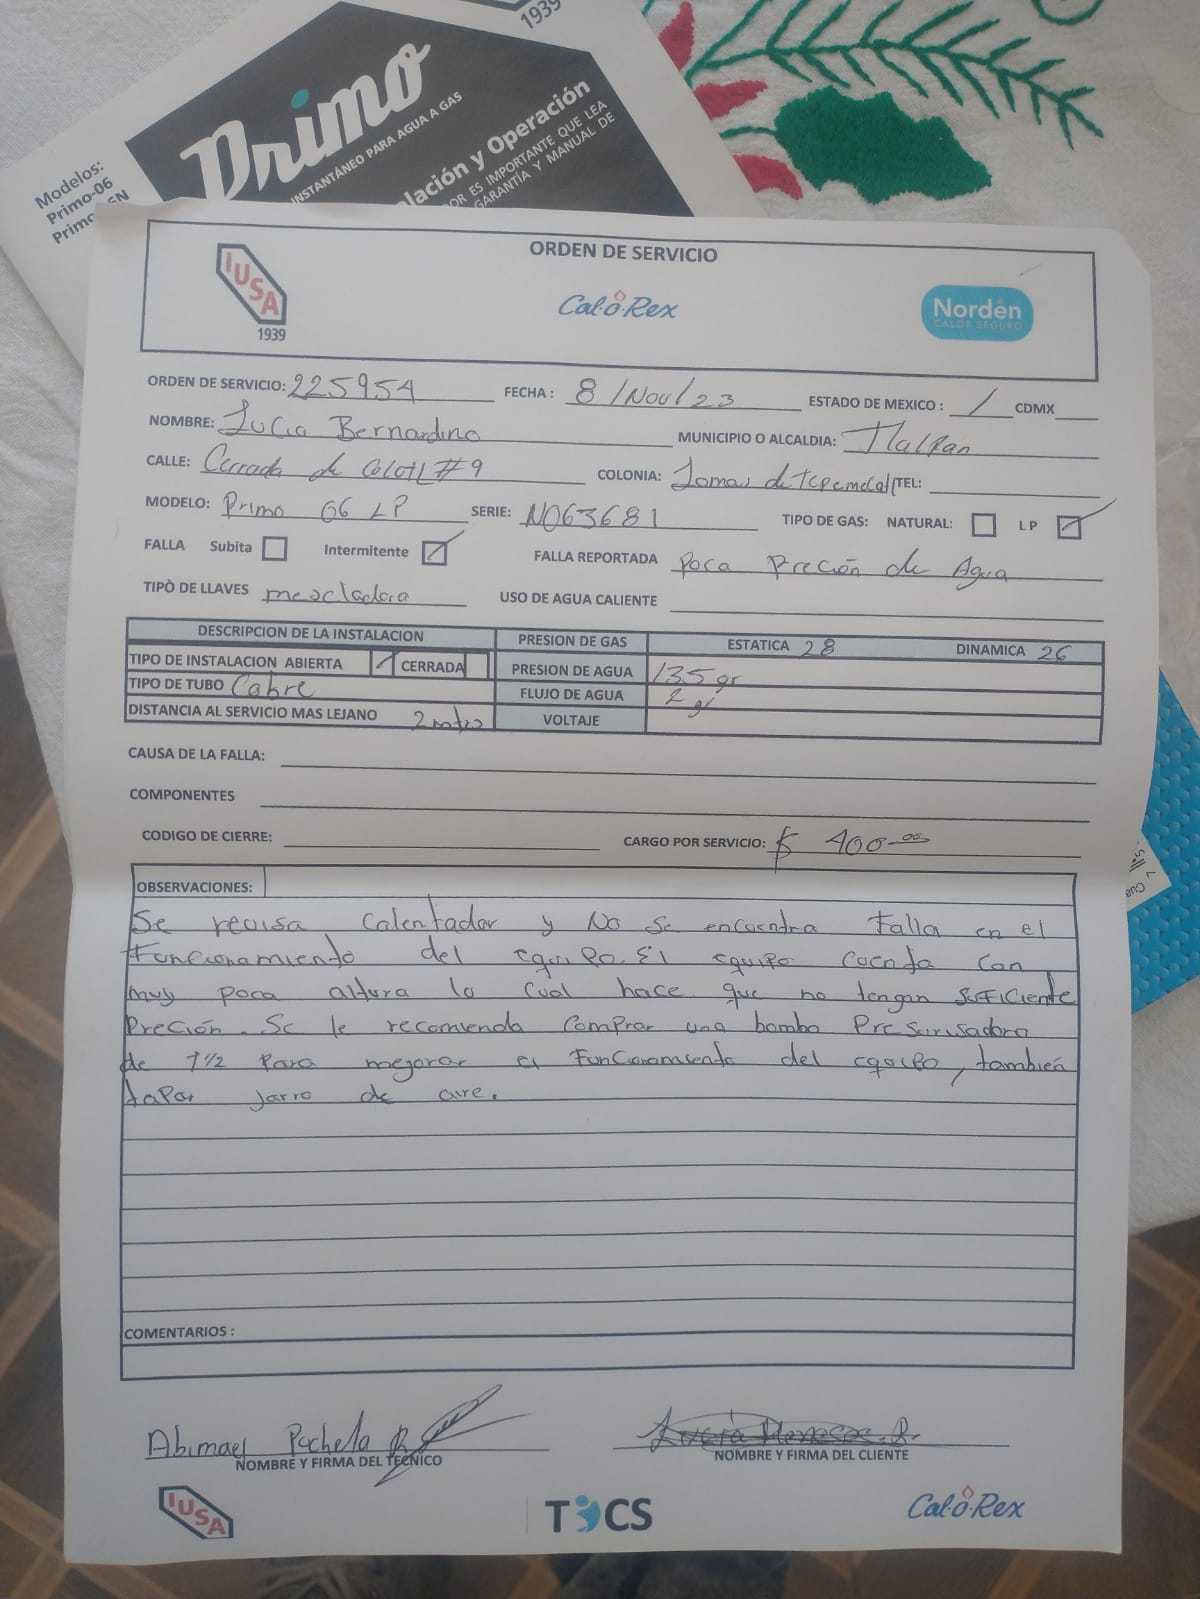 1939
Primo
INSTANTÁNEO PARA AGUA A GAS
Modelos:
Primo-06
lación y Operación
OR ES IMPORTANTE QUE LEA
GARANTÍA Y MANUAL DE
ORDEN DE SERVICIO
IUSA
1939
Cal-o-Rex
Nordën
CALOR SEGURO
ORDEN DE SERVICIO: 225954 FECHA : 8/Nov/23 ESTADO DE MEXICO : / CDMX
NOMBRE: Lucia Bernardino MUNICIPIO O ALCALDIA: Tlalpan
CALLE: Cerrada de Colotl #9 COLONIA: Lomas de Tepemecatl TEL:
MODELO: Primo 06 LP SERIE: N063681 TIPO DE GAS: NATURAL: LP
FALLA Subita Intermitente FALLA REPORTADA Poca Preción de Agua
TIPÒ DE LLAVES mezcladora USO DE AGUA CALIENTE
DESCRIPCION DE LA INSTALACION PRESION DE GAS ESTATICA 28 DINAMICA 26
TIPO DE INSTALACION ABIERTA / CERRADA PRESION DE AGUA 135 gr
TIPO DE TUBO Cobre FLUJO DE AGUA 2 gr
DISTANCIA AL SERVICIO MAS LEJANO 2 VOLTAJE
CAUSA DE LA FALLA:
COMPONENTES
CODIGO DE CIERRE: CARGO POR SERVICIO: $ 400.00
OBSERVACIONES:
Se revisa calentador y No se encuentra Falla en el
Funcionamiento del equipo. El equipo cuenta con
muy poca altura lo cual hace que no tengan suficiente
Preción. Se le recomienda comprar una bomba Presurisadora
de 1 1/2 Para mejorar el Funcionamiento del equipo, también
tapar jarro de aire.
COMENTARIOS :
Abimael
NOMBRE Y FIRMA DEL TECNICO
NOMBRE Y FIRMA DEL CLIENTE
IUSA
TICS
Cal-o-Rex